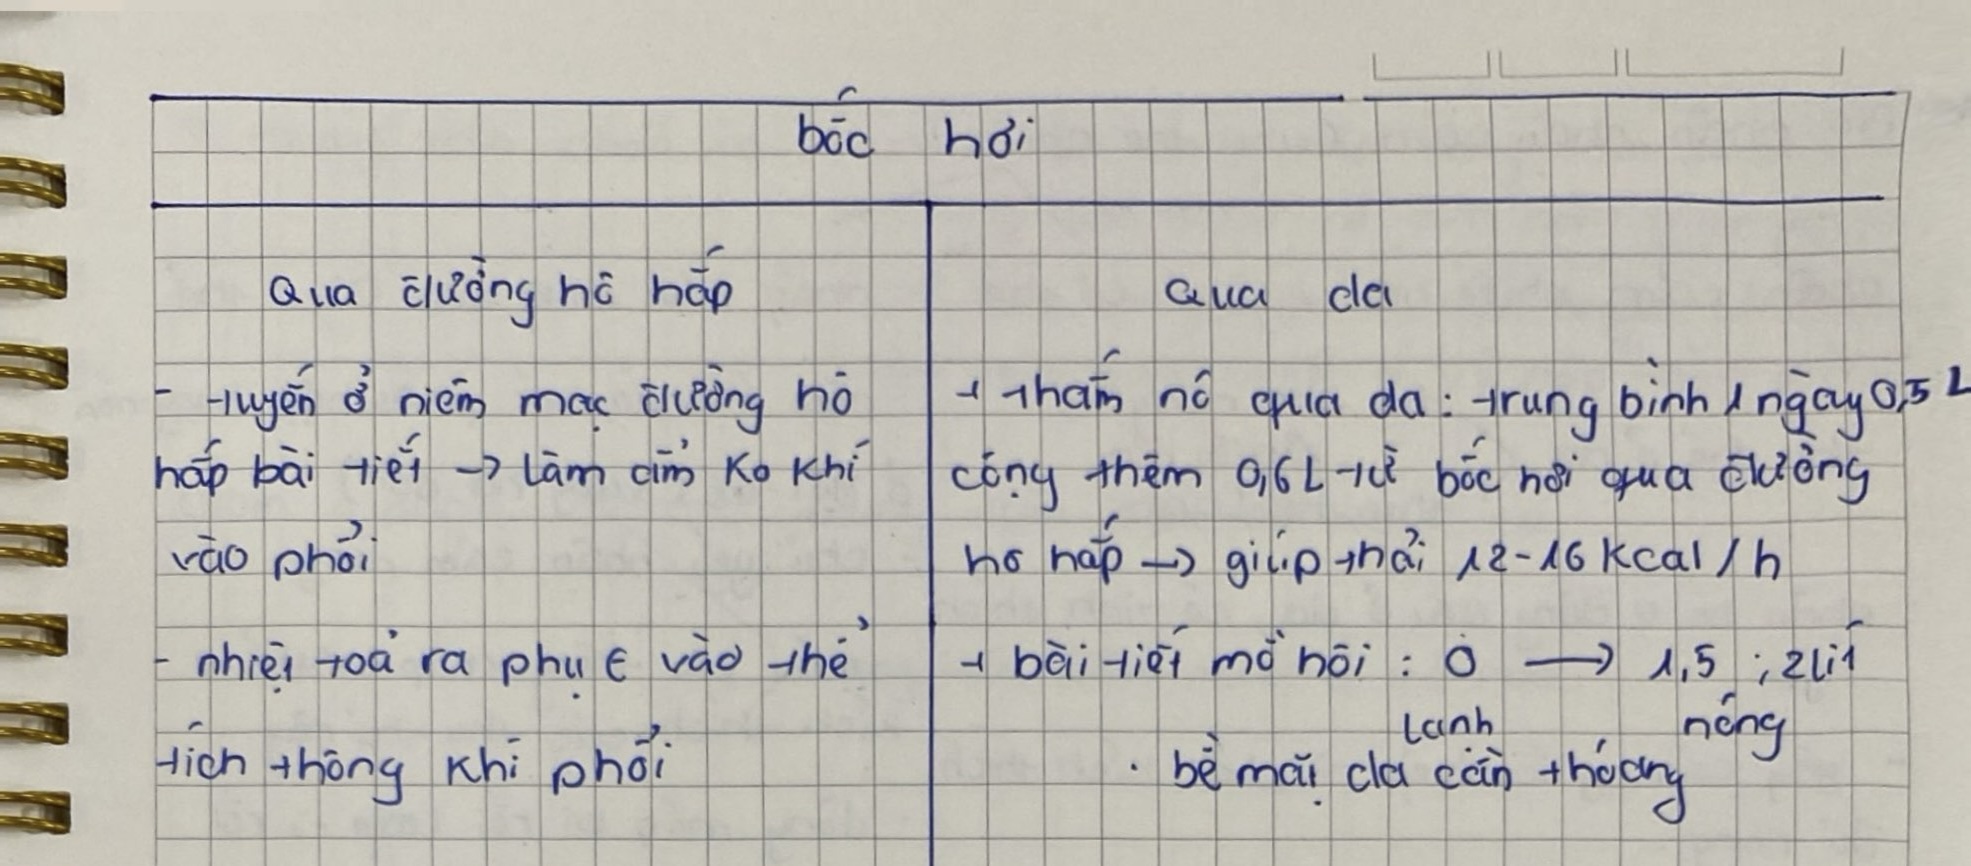 bốc hơi
Qua đường hô hấp
- tuyến ở niêm mạc đường hô
hấp bài tiết → làm ẩm ko khí
vào phổi
- nhiệt toả ra phụ ∈ vào thể
tích thông khí phổi
Qua da
+ thấm nc qua da : trung bình 1 ngày 0,5 L
cộng thêm 0,6 L từ bốc hơi qua đường
hô hấp → giúp thải 12-16 Kcal / h
+ bài tiết mồ hôi : 0 → 1,5 ; 2 lít
lạnh nóng
. bề mặt da cần thoáng